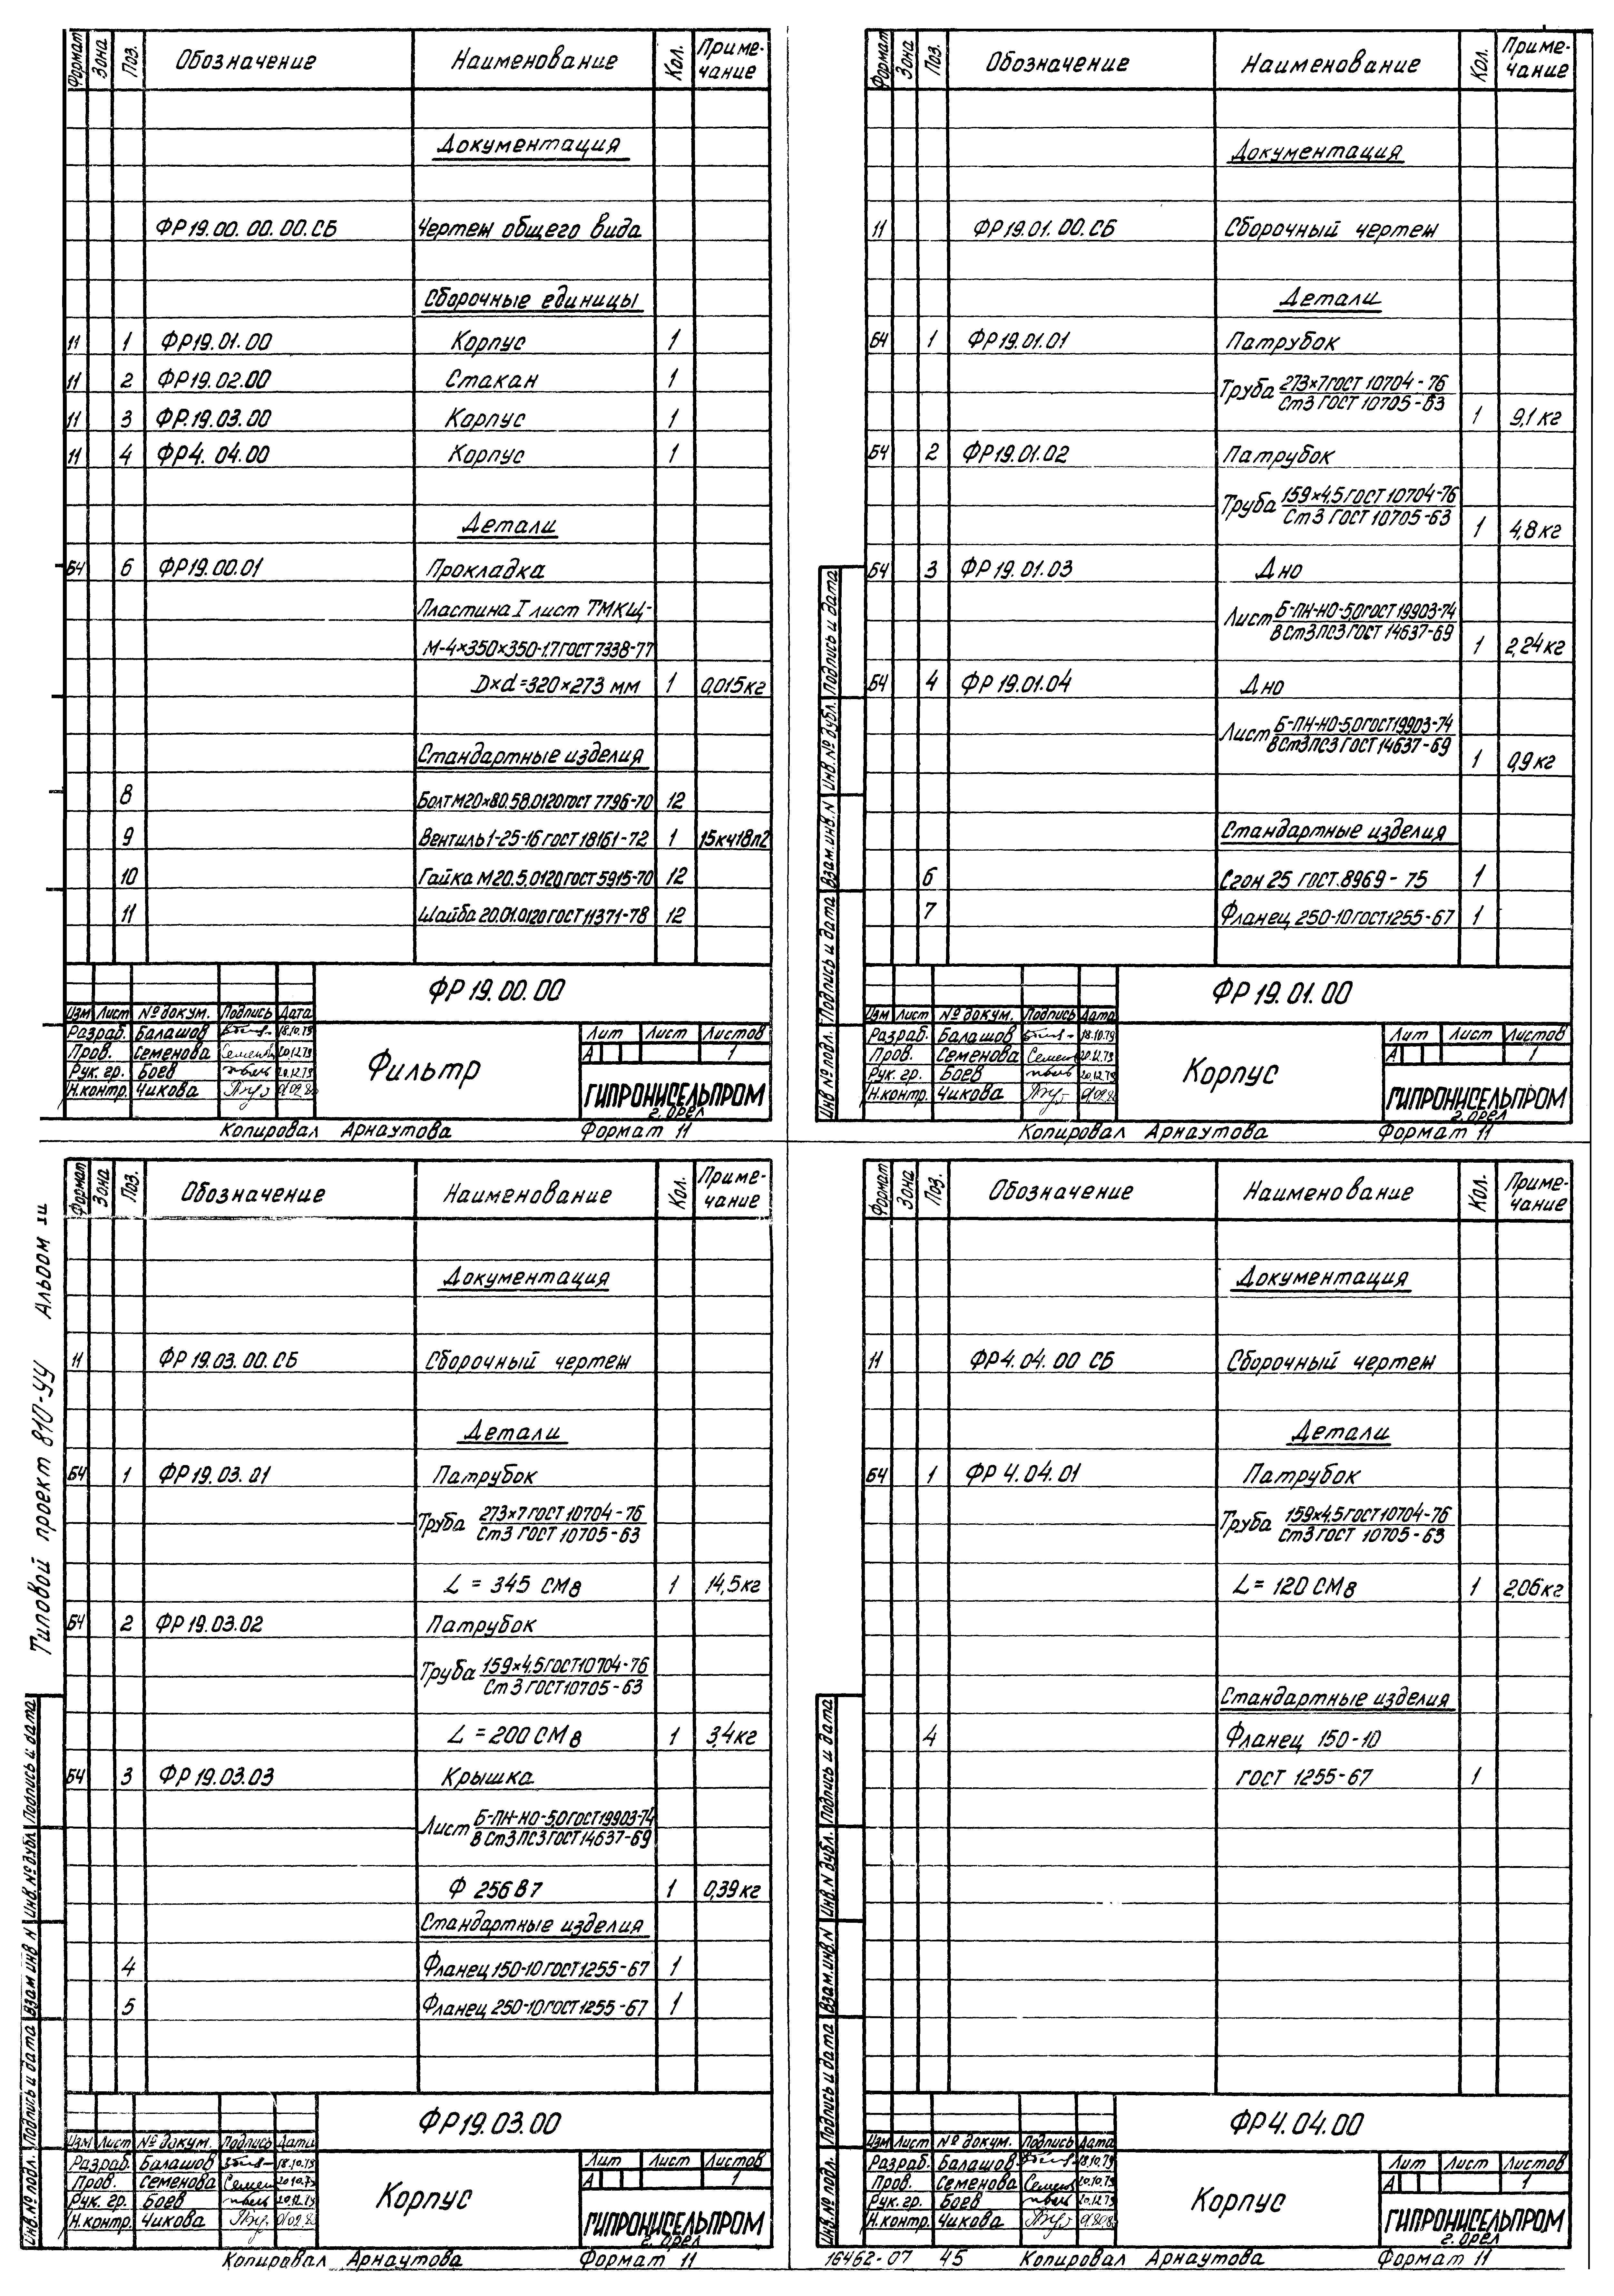 Формат Зона Поз. Обозначение Наименование Кол. Приме-
чание
Документация
ФР19.00.00.00.СБ Чертеж общего вида
Сборочные единицы
11 1 ФР19.01.00 Корпус 1
11 2 ФР19.02.00 Стакан 1
11 3 ФР.19.03.00 Корпус 1
11 4 ФР4.04.00 Корпус 1
Детали
Б4 6 ФР19.00.01 Прокладка
Пластина I лист ТМКЩ-
М-4×350×350-1.7 ГОСТ 7338-77
D×d=320×273 мм 1 0,015кг
Стандартные изделия
8 Болт М20×80.58.0120 ГОСТ 7796-70 12
9 Вентиль 1-25-16 ГОСТ 18161-72 1 15кч18п2
10 Гайка М20.5.0120 ГОСТ 5915-70 12
11 Шайба 20.01.0120 ГОСТ 11371-78 12
ФР19.00.00
Изм Лист № докум. Подпись Дата
Разраб. Балашов 18.10.79
Пров. Семенова 20.12.79
Рук. гр. Боев 20.12.79
Н.контр. Чикова
Фильтр
Лит Лист Листов
А 1
ГИПРОНИСЕЛЬПРОМ
г. Орел
Копировал Арнаутова Формат 11
Формат Зона Поз. Обозначение Наименование Кол. Приме-
чание
Документация
11 ФР19.01.00.СБ Сборочный чертеж
Детали
Б4 1 ФР19.01.01 Патрубок
Труба 273×7 ГОСТ 10704-76
Ст3 ГОСТ 10705-63
1 9,1 кг
Б4 2 ФР19.01.02 Патрубок
Труба 159×4.5 ГОСТ 10704-76
Ст3 ГОСТ 10705-63
1 4,8 кг
Б4 3 ФР19.01.03 Дно
Лист Б-ПН-НО-5,0 ГОСТ 19903-74
В Ст3ПС3 ГОСТ 14637-69
1 2,24 кг
Б4 4 ФР19.01.04 Дно
Лист Б-ПН-НО-5,0 ГОСТ 19903-74
В Ст3ПС3 ГОСТ 14637-69
1 0,9 кг
Стандартные изделия
6 Сгон 25 ГОСТ.8969-75 1
7 Фланец 250-10 ГОСТ 1255-67 1
Инв № подл. Подпись и дата Взам.инв.N Инв.№ дубл. Подпись и дата
ФР19.01.00
Изм Лист № докум. Подпись Дата
Разраб. Балашов 18.10.79
Пров. Семенова 20.12.79
Рук. гр. Боев 20.12.79
Н.контр. Чикова
Корпус
Лит Лист Листов
А 1
ГИПРОНИСЕЛЬПРОМ
г. Орел
Копировал Арнаутова Формат 11
Типовой проект 810-УУ Альбом
Формат Зона Поз. Обозначение Наименование Кол. Приме-
чание
Документация
11 ФР19.03.00.СБ Сборочный чертеж
Детали
Б4 1 ФР19.03.01 Патрубок
Труба 273×7 ГОСТ 10704-76
Ст3 ГОСТ 10705-63
L = 345 СМ8 1 14,5кг
Б4 2 ФР19.03.02 Патрубок
Труба 159×4.5 ГОСТ 10704-76
Ст3 ГОСТ 10705-63
L = 200 СМ8 1 3,4кг
Б4 3 ФР19.03.03 Крышка
Лист Б-ПН-НО-5,0 ГОСТ 19903-74
В Ст3ПС3 ГОСТ 14637-69
Ф 256 В7 1 0,39кг
Стандартные изделия
4 Фланец 150-10 ГОСТ 1255-67 1
5 Фланец 250-10 ГОСТ 1255-67 1
Инв.№ подл. Подпись и дата Взам инв N Инв.№ дубл Подпись и дата
ФР19.03.00
Изм Лист № докум. Подпись Дата
Разраб. Балашов 18.10.79
Пров. Семенова 20.10.79
Рук. гр. Боев 20.12.79
Н.контр. Чикова
Корпус
Лит Лист Листов
А 1
ГИПРОНИСЕЛЬПРОМ
г. Орел
Копировал Арнаутова Формат 11
Формат Зона Поз. Обозначение Наименование Кол. Приме-
чание
Документация
11 ФР4.04.00 СБ Сборочный чертеж
Детали
Б4 1 ФР4.04.01 Патрубок
Труба 159×4.5 ГОСТ 10704-76
Ст3 ГОСТ 10705-63
L = 120 СМ8 1 2,06кг
Стандартные изделия
4 Фланец 150-10
ГОСТ 1255-67 1
Инв.№ подл. Подпись и дата Взам.инв.N Инв.N дубл. Подпись и дата
ФР4.04.00
Изм Лист № докум. Подпись Дата
Разраб. Балашов 18.10.79
Пров. Семенова 20.10.79
Рук. гр. Боев 20.12.79
Н.контр. Чикова
Корпус
Лит Лист Листов
А 1
ГИПРОНИСЕЛЬПРОМ
г. Орел
16462-07 45 Копировал Арнаутова Формат 11